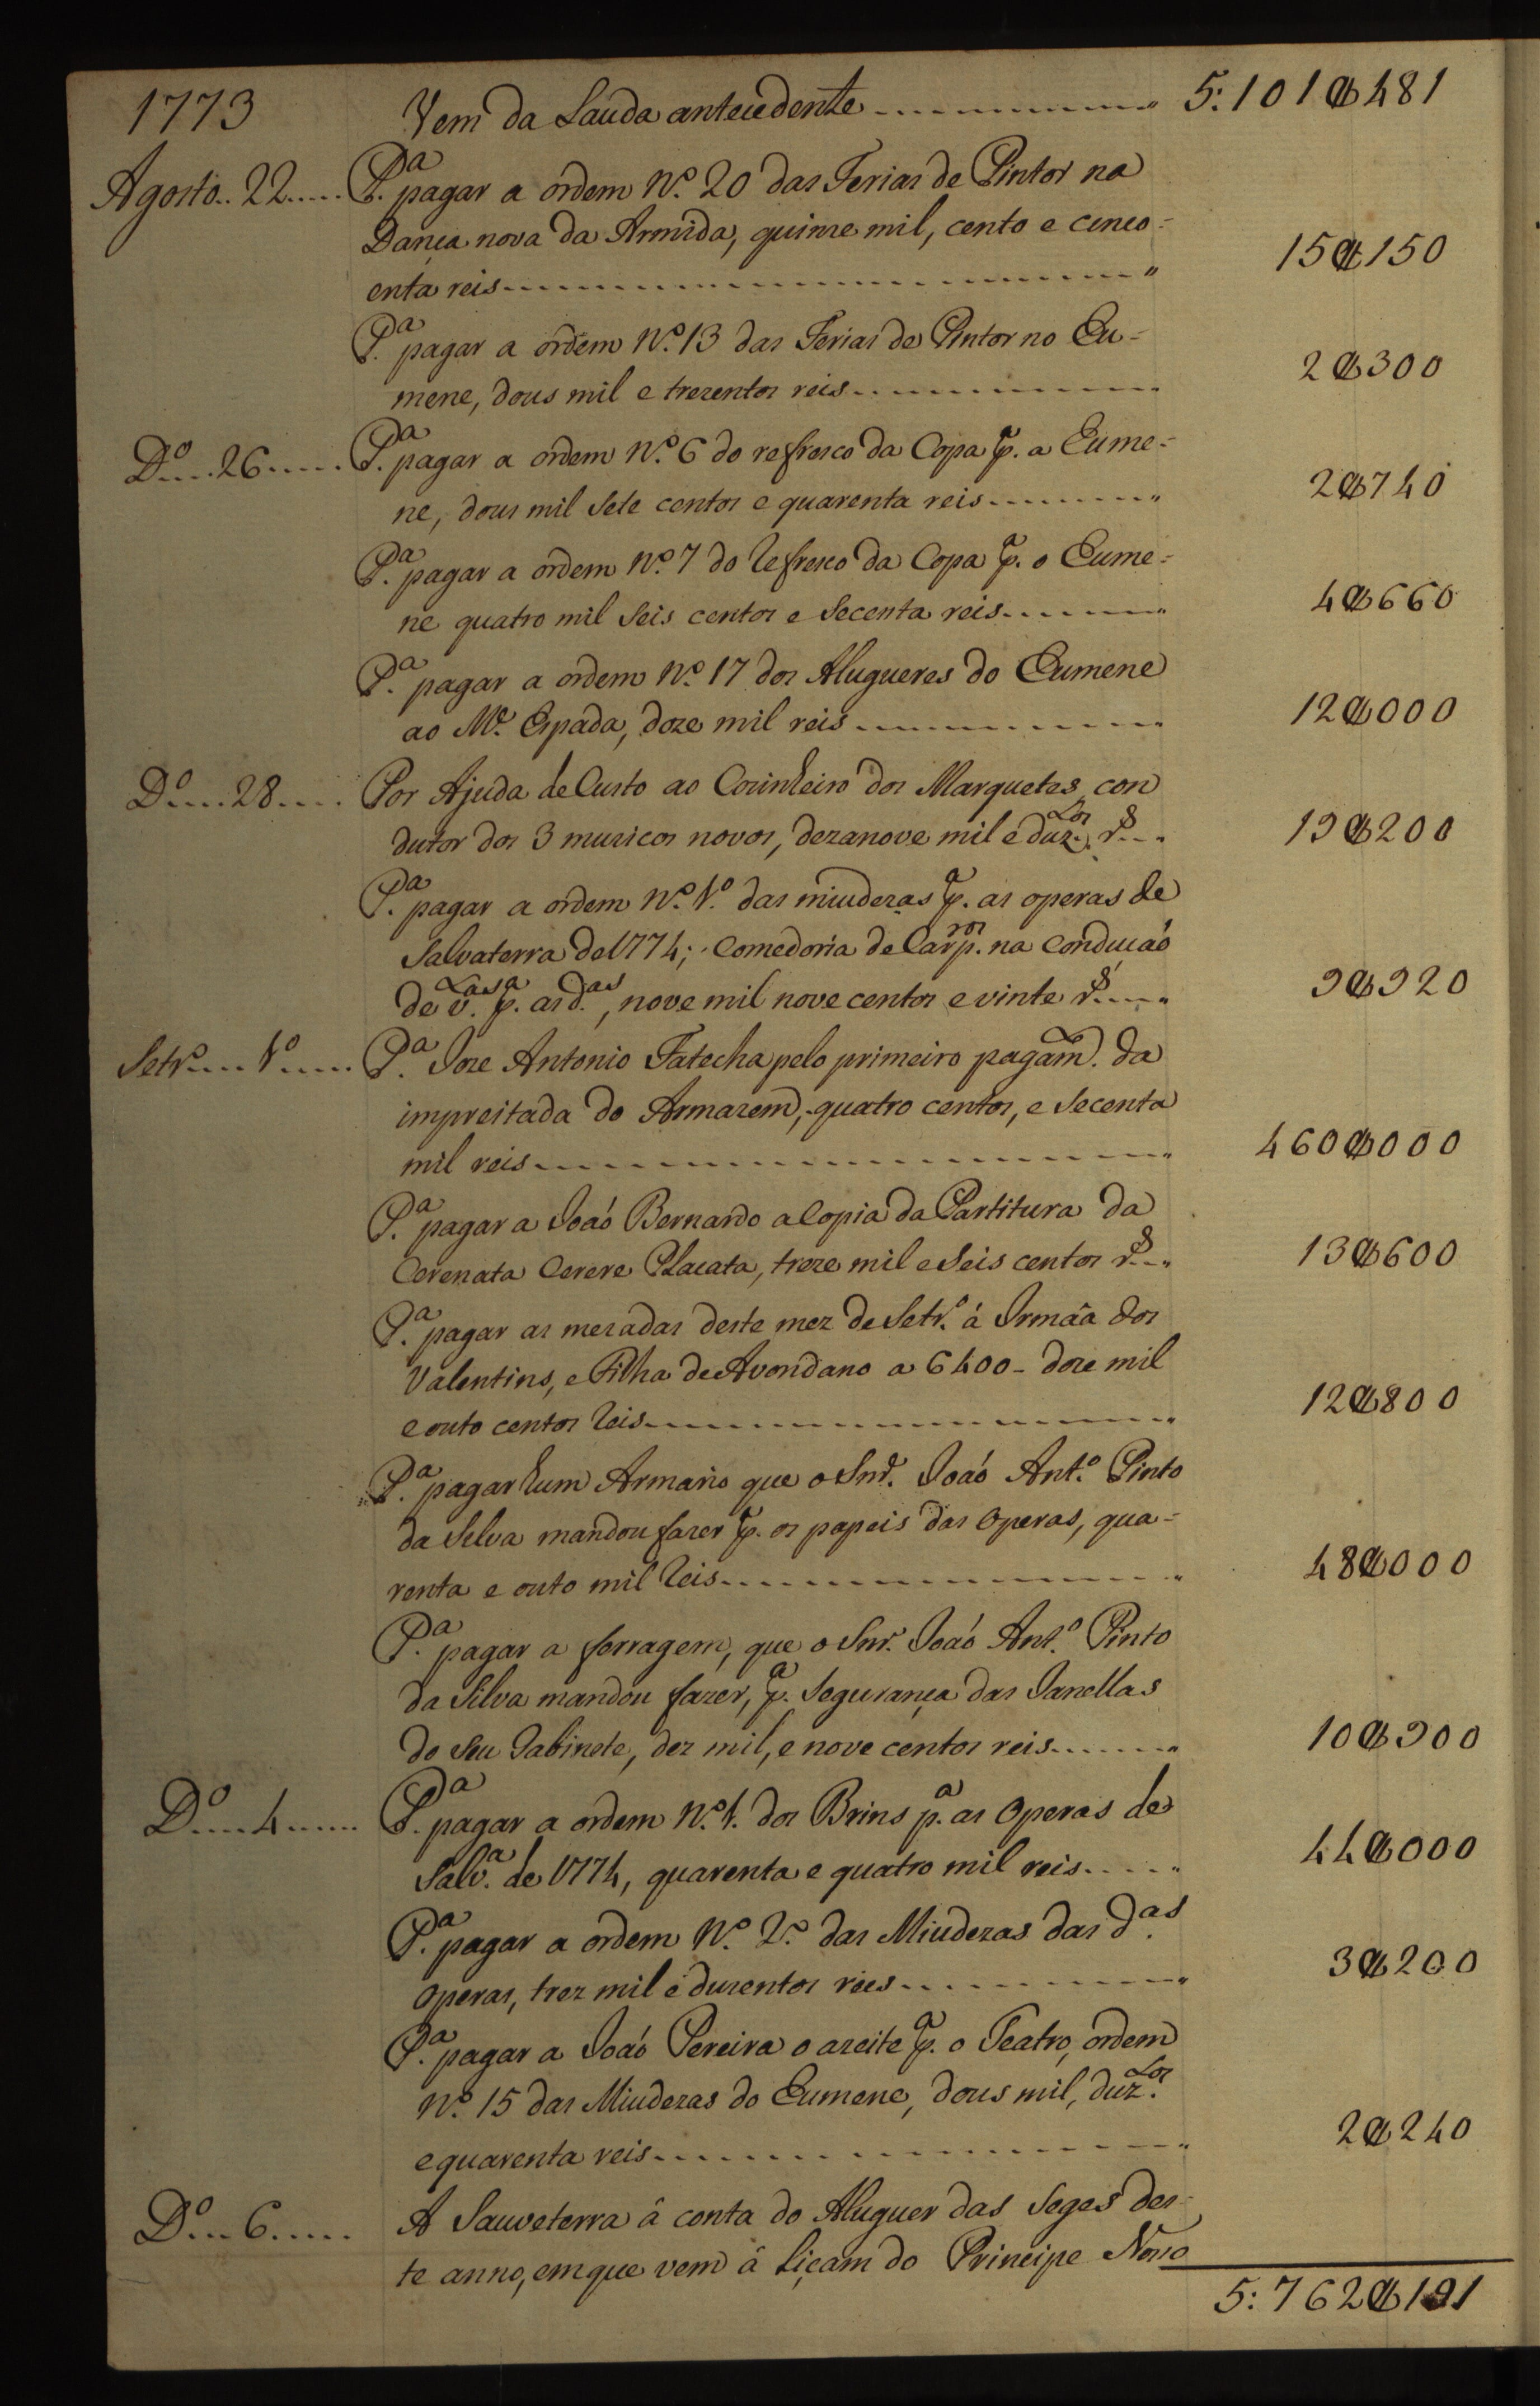 1773 Vem da Sauda antecedente 5:101$481
Agosto 22 P.ª pagar a ordem N.º 20 das Ferias de Pintor na
Dança nova da Armida, quinze mil, cento e cinco-
enta reis 15$150
P.ª pagar a ordem N.º 13 das Ferias de Pintor no Eu-
mene, dous mil e trezentos reis 2$300
D.º 26 P.ª pagar a ordem N.º 6 do refresco da Copa p.ª a Eume-
ne, dous mil Sete centos e quarenta reis 2$740
P.ª pagar a ordem N.º 7 do Refresco da Copa p.ª o Eume-
ne quatro mil Seis centos e Secenta reis 4$660
P.ª pagar a ordem N.º 17 dos Alugueres do Eumene
ao M.e Espada, doze mil reis 12$000
D.º 28 Por Ajuda de Custo ao Cozinheiro dos Marquetes con
dutor dos 3 muzicos novos, dezanove mil e duz.tos r.s 19$200
P.ª pagar a ordem N.º 1.º das miudezas p.ª as operas de
Salvaterra de 1774; Comedoria de Carp.ros na Conduçaõ
de v.tas p.ª as d.as, nove mil nove centos e vinte r.s 9$920
Setr.º 1.º P.ª Joze Antonio Fatecha pelo primeiro pagam.to da
impreitada do Armazem, quatro centos, e Secenta
mil reis 460$000
P.ª pagar a Joaõ Bernardo a Copia da Partitura da
Cerenata Cerere Placata, treze mil e Seis centos r.s 13$600
P.ª pagar as mezadas deste mez de Setr.º á Irmãa dos
Valentins, e Filha de Avondano a 6400 - doze mil
e outo centos Reis 12$800
P.ª pagar hum Armario que o Snr. Joaõ Ant.º Pinto
da Silva mandou fazer p.ª os papeis das Operas, qua-
renta e outo mil Reis 48$000
P.ª pagar a ferragem, que o Snr. Joaõ Ant.º Pinto
da Silva mandou fazer, p.ª Segurança das Janellas
do Seu Gabinete, dez mil, e nove centos reis 10$900
D.º 4 P.ª pagar a ordem N.º 1. dos Brins p.ª as Operas de
Salv.ª de 1774, quarenta e quatro mil reis 44$000
P.ª pagar a ordem N.º 2.º das Miudezas das d.as
Operas, trez mil e duzentos reis 3$200
P.ª pagar a Joaõ Pereira o azeite p.ª o Teatro, ordem
N.º 15 das Miudezas do Eumene, dous mil, duz.tos
e quarenta reis 2$240
D.º 6 A Sauveterra â conta do Aluguer das Seges des-
te anno, em que vem â Liçam do Principe Nosso
5:762$191